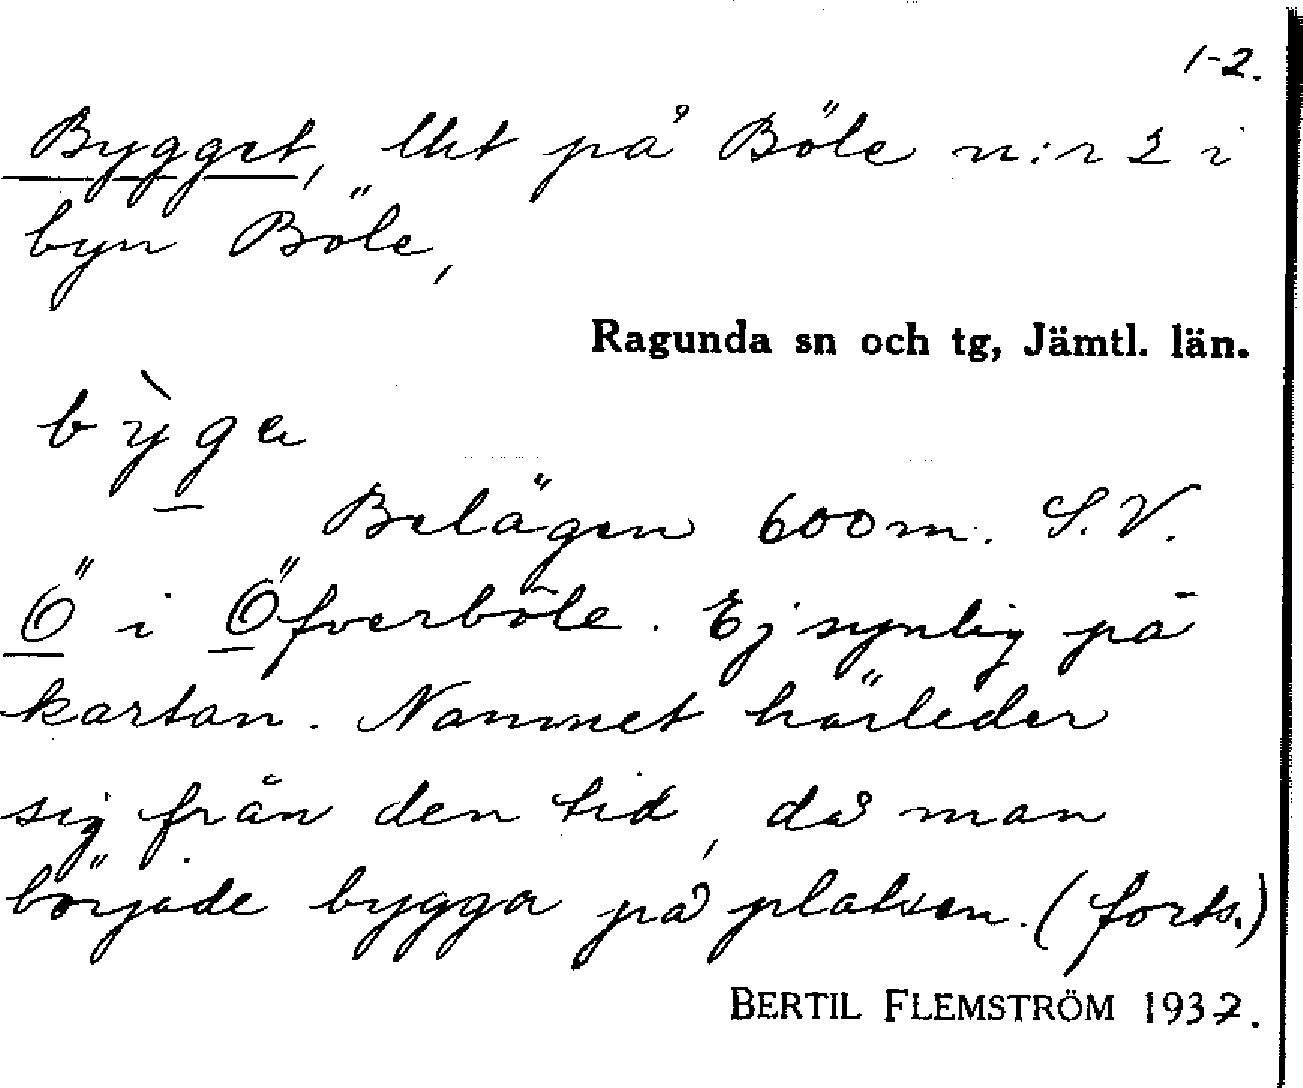 1-2.
Bygget, lht på Böle n:r 2 i
byn Böle,
Ragunda sn och tg, Jämtl. län.
bỳga
Belägen 600 m. S.V.
Ö i Öfverböle. Ej synlig på
kartan. Namnet härleder
sig från den tid, då man
började bygga på platsen. (forts.)
BERTIL FLEMSTRÖM 1937.